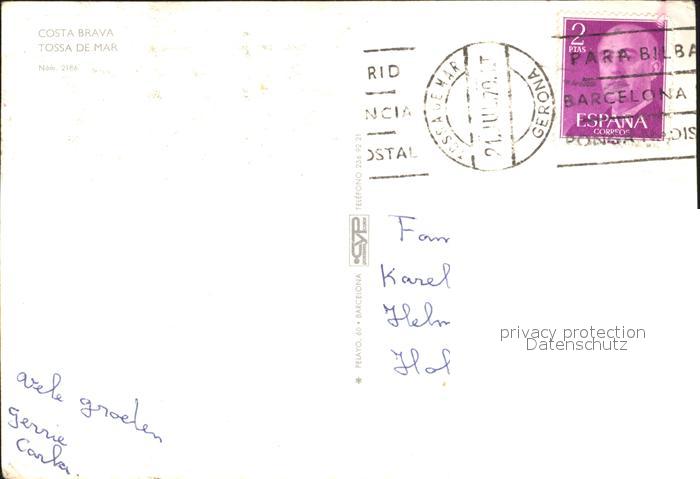 COSTA BRAVA
TOSSA DE MAR
Núm. 2186
RID
NCIA
OSTAL
TOSSA DE MAR
21.JUL.70
GERONA
2
PTAS
PARA BILBA
BARCELONA
ESPAÑA
CORREOS
PONGA
DIS
TELÉFONO 236 92 21
CYP
PELAYO, 60 • BARCELONA
Fam
Karel
Helm
Hol
privacy protection
Datenschutz
vele groeten
Gerrie
Carla.